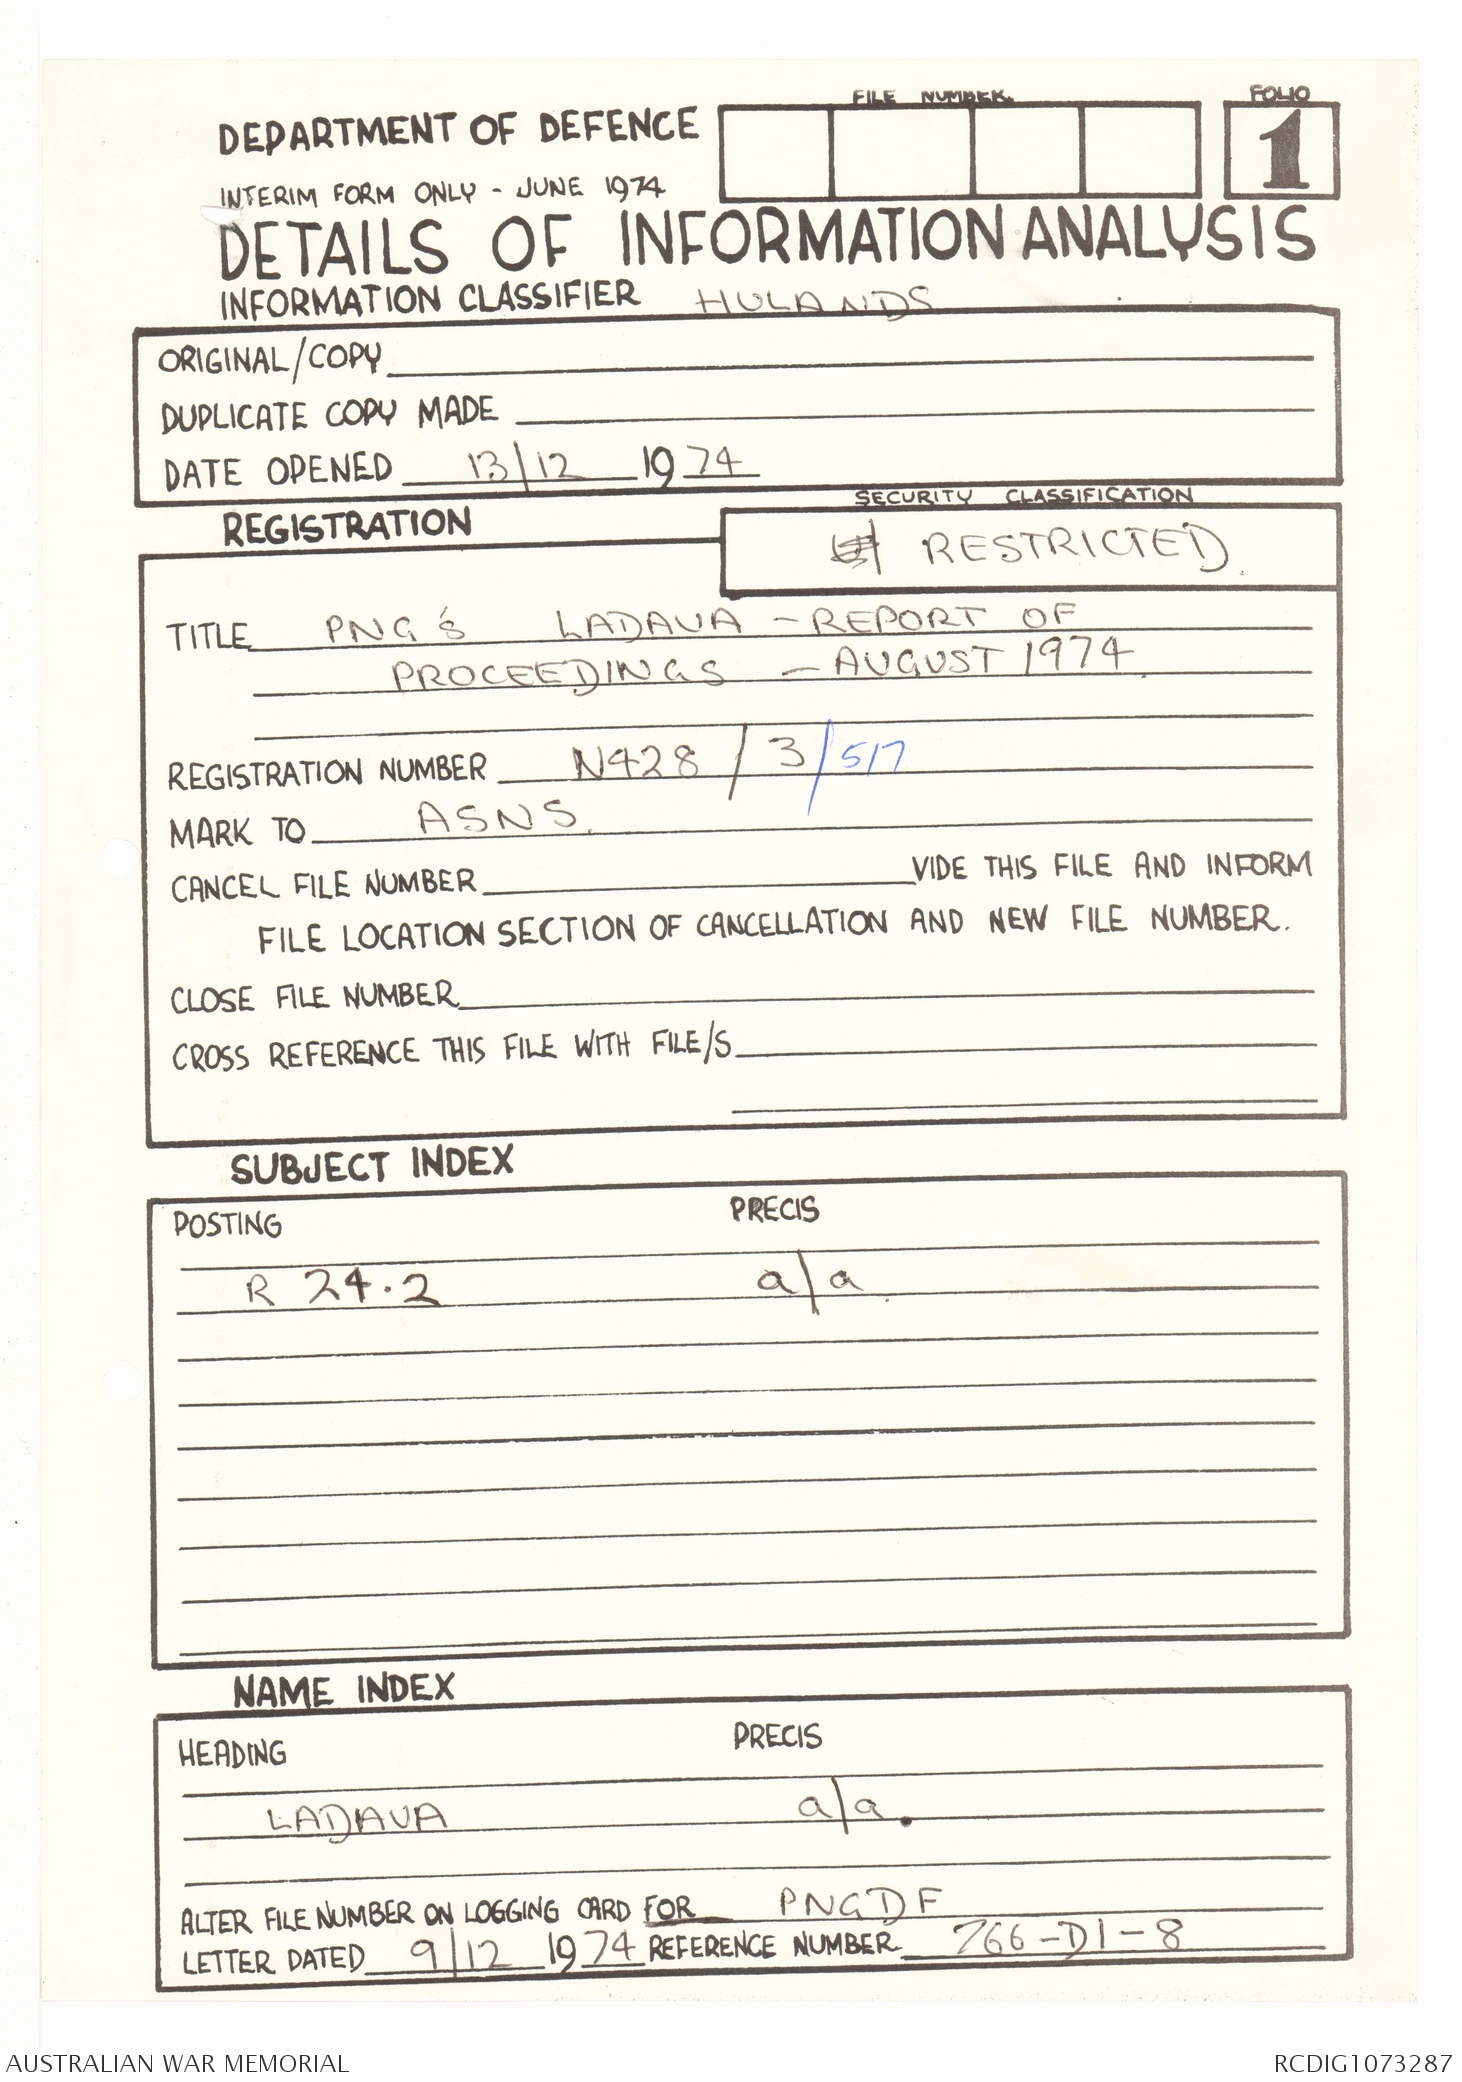 FILE NUMBER
FOLIO
DEPARTMENT OF DEFENCE
1
INTERIM FORM ONLY - JUNE 1974
DETAILS OF INFORMATION ANALYSIS
INFORMATION CLASSIFIER HULANDS
ORIGINAL/COPY
DUPLICATE COPY MADE
DATE OPENED 13/12 1974
SECURITY CLASSIFICATION
REGISTRATION
RESTRICTED
TITLE PNG's LADAVA - REPORT OF
PROCEEDINGS - AUGUST 1974
REGISTRATION NUMBER N428/3/517
MARK TO ASNS.
CANCEL FILE NUMBER VIDE THIS FILE AND INFORM
FILE LOCATION SECTION OF CANCELLATION AND NEW FILE NUMBER.
CLOSE FILE NUMBER
CROSS REFERENCE THIS FILE WITH FILE/S
SUBJECT INDEX
POSTING PRECIS
R 24.2 a/a.
NAME INDEX
HEADING PRECIS
LADAVA a/a.
ALTER FILE NUMBER ON LOGGING CARD FOR PNGDF
LETTER DATED 9/12 1974 REFERENCE NUMBER 766-D1-8
AUSTRALIAN WAR MEMORIAL RCDIG1073287